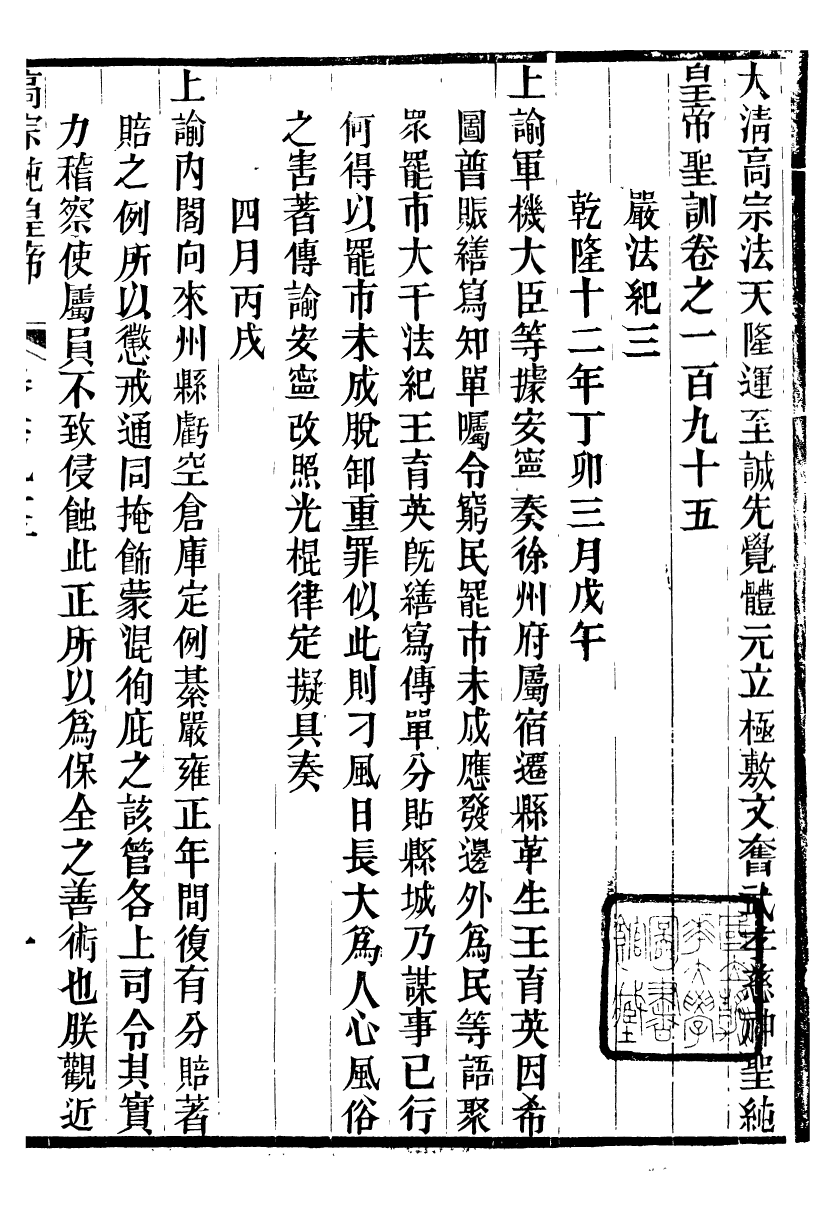 大清高宗法天隆運至誠先覺體元立極敷文奮武孝慈神聖純
皇帝聖訓卷之一百九十五
嚴法紀三
乾隆十二年丁卯三月戊午
上諭軍機大臣等據安寧奏徐州府屬宿遷縣革生王育英因希
圖普賑繕寫知單囑令窮民罷市未成應發邊外為民等語聚
眾罷市大干法紀王育英旣繕寫傳單分貼縣城乃謀事已行
何得以罷市未成脫卸重罪似此則刁風日長大為人心風俗
之害著傳諭安寧改照光棍律定擬具奏
四月丙戌
上諭內閣向來州縣虧空倉庫定例綦嚴雍正年間復有分賠著
賠之例所以懲戒通同掩飾蒙混徇庇之該管各上司令其實
力稽察使屬員不致侵蝕此正所以為保全之善術也朕觀近
高宗純皇帝
一